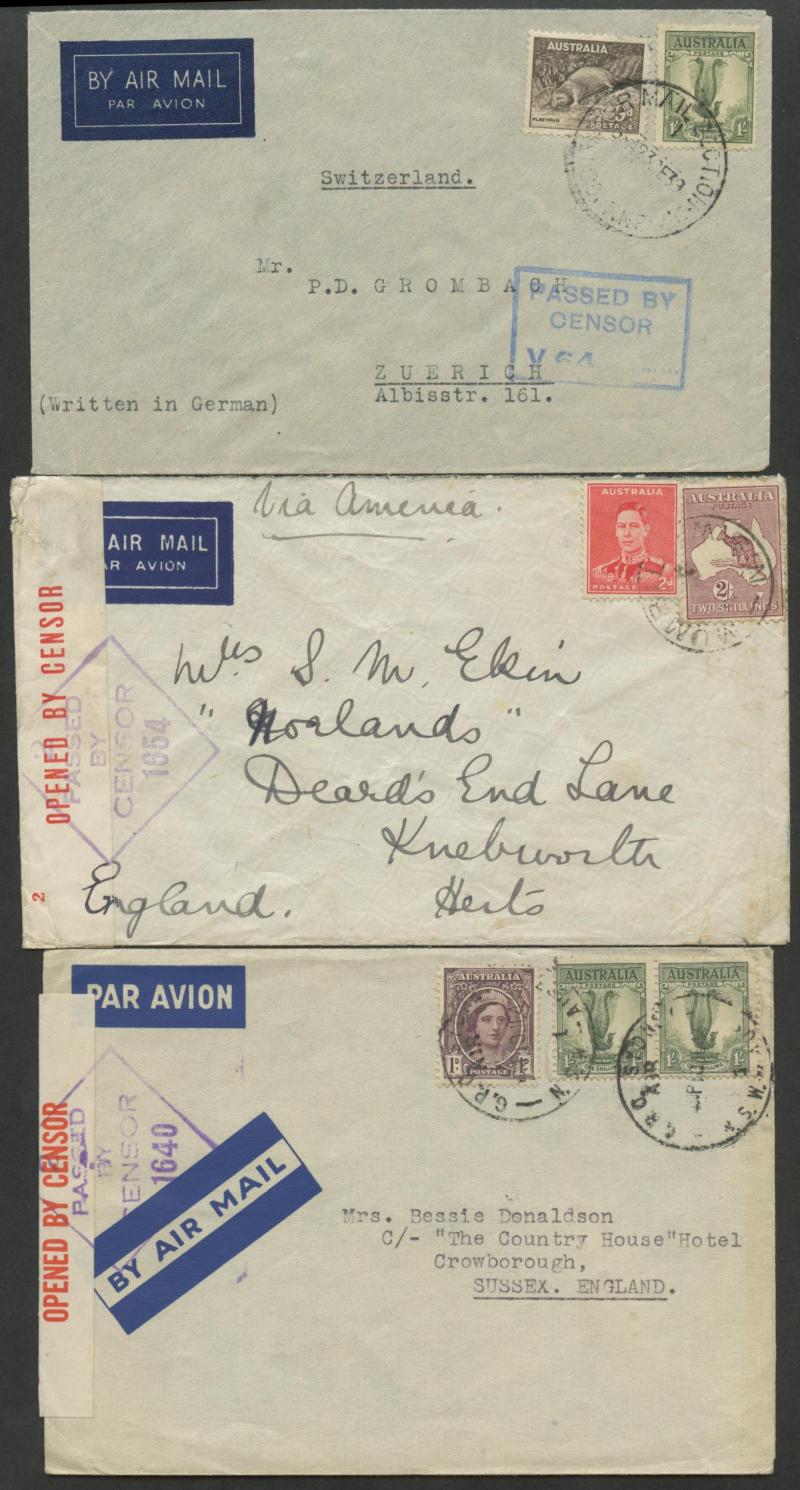 BY AIR MAIL
PAR AVION
AUSTRALIA
PLATYPUS
9d
POSTAGE
AUSTRALIA
POSTAGE
1/-
AIR MAIL SECTION
Switzerland.
Mr.
P.D. GROMBACH
PASSED BY
CENSOR
ZUERICH
Albisstr. 161.
(Written in German)
AIR MAIL
AR AVION
Via America.
AUSTRALIA
POSTAGE
2d
AUSTRALIA
POSTAGE
2/-
TWO SHILLINGS
OPENED BY CENSOR
2
PASSED
BY
CENSOR
1654
Mrs S. M. Ekin
"Norlands"
Deard's End Lane
Knebworth
Herts
England.
PAR AVION
AUSTRALIA
1D
1D
POSTAGE
AUSTRALIA
POSTAGE
1/-
ONE SHILLING
AUSTRALIA
POSTAGE
1/-
1/-
G.P.O.
G.P.O.
AIR
OPENED BY CENSOR
PASSED
BY
CENSOR
1640
BY AIR MAIL
Mrs. Bessie Donaldson
C/- "The Country House"Hotel
Crowborough,
SUSSEX. ENGLAND.